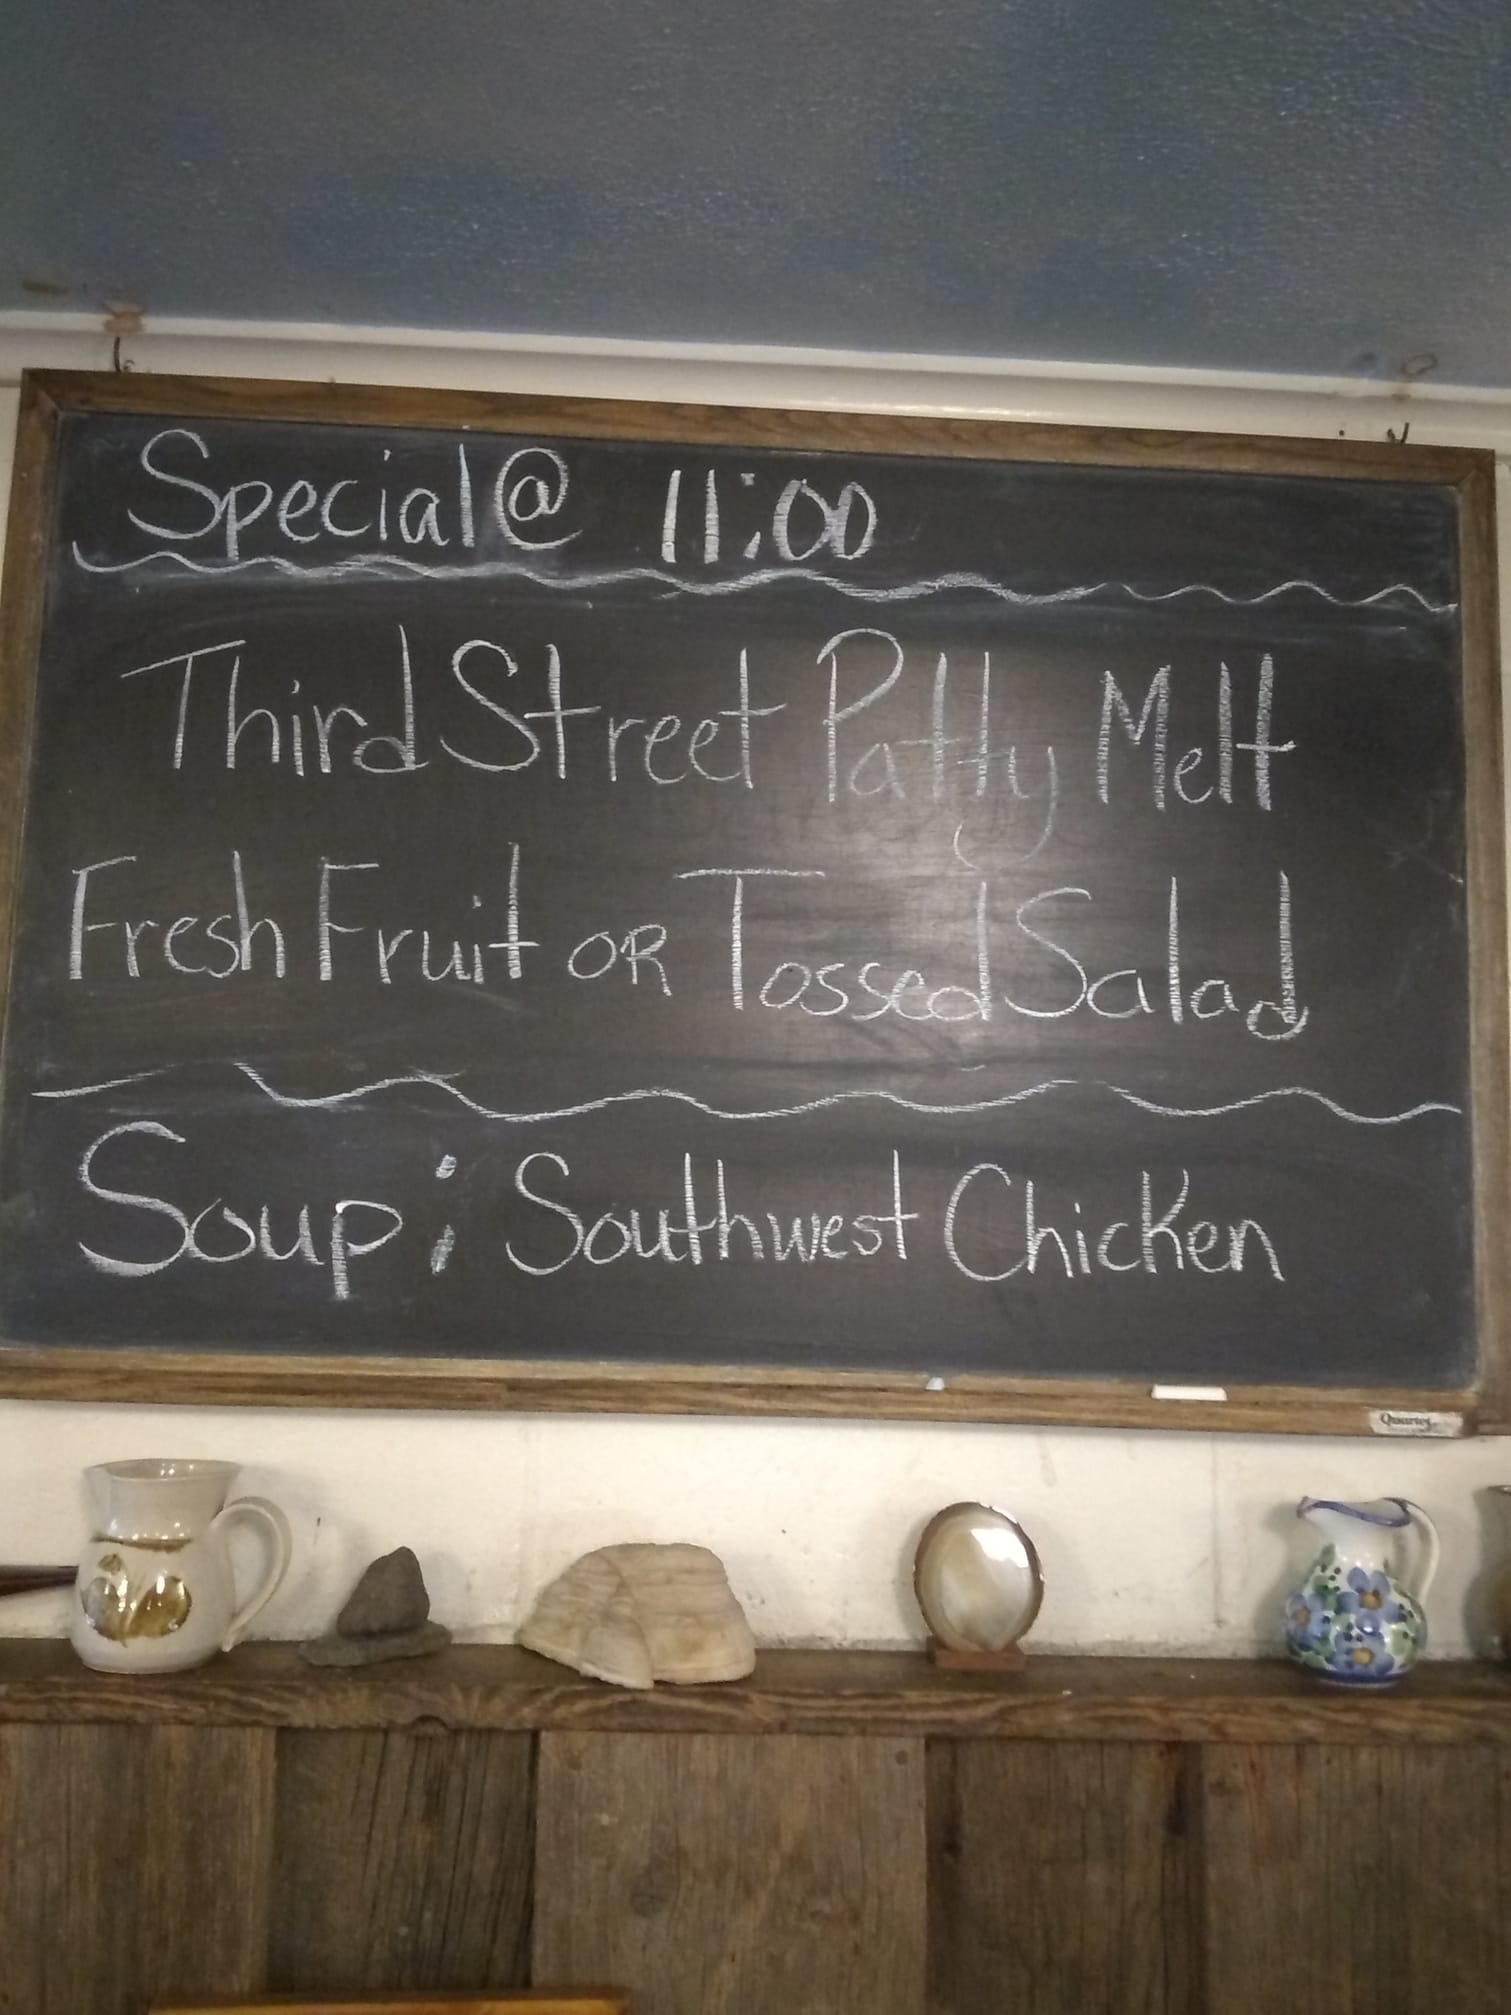 Special @ 11:00
Third Street Patty Melt
Fresh Fruit OR Tossed Salad
Soup: Southwest Chicken
Quartet